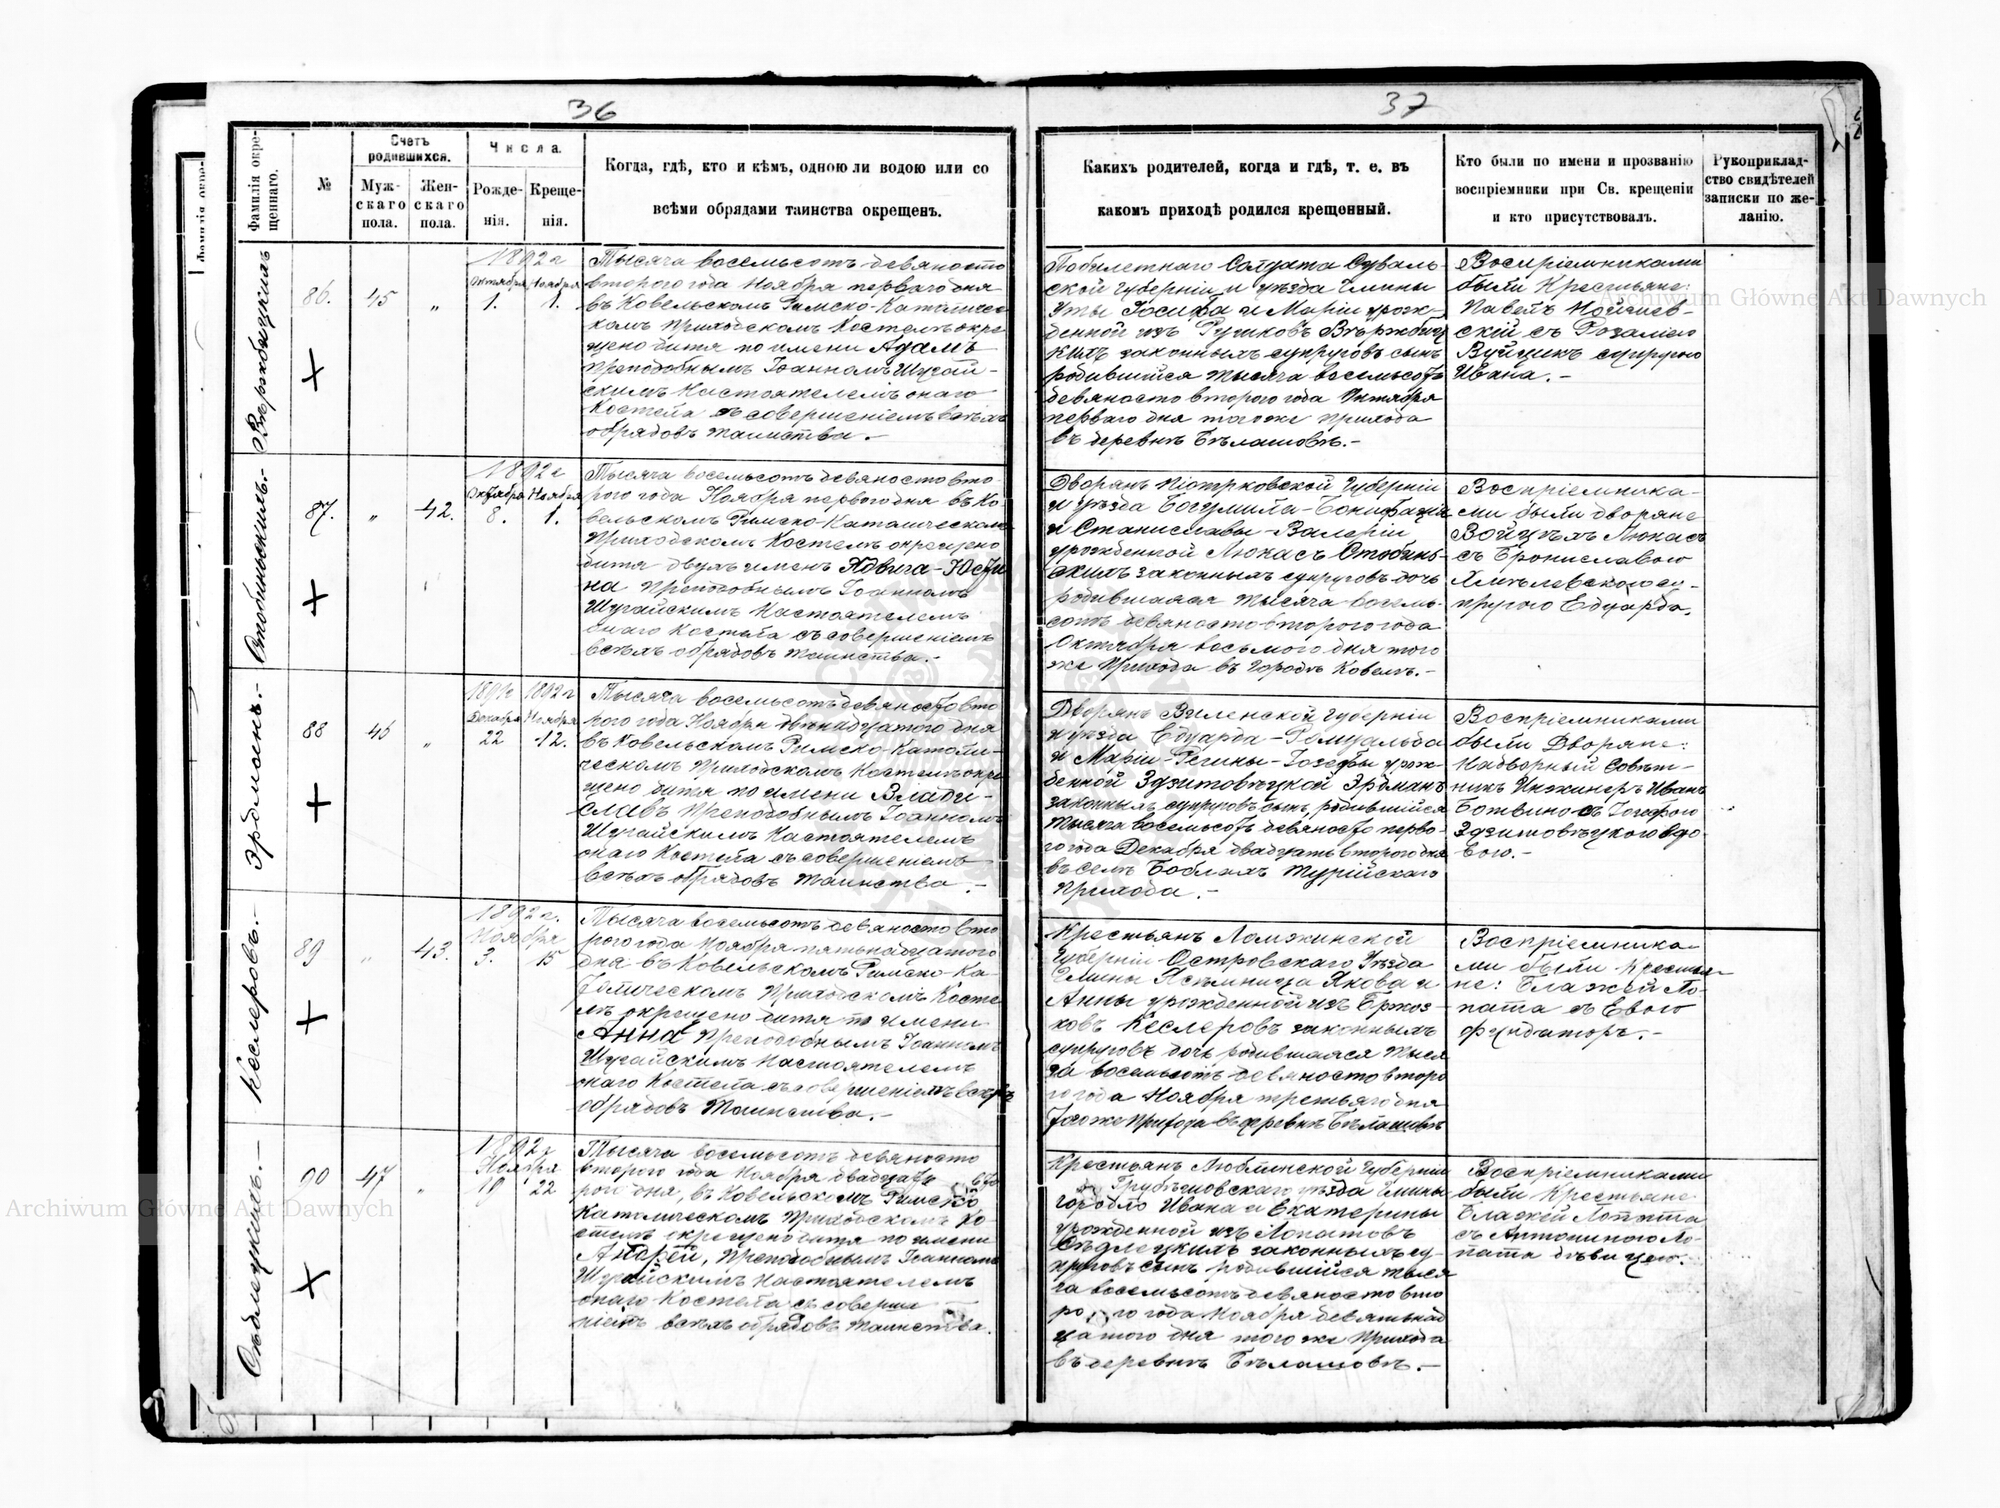 36
37
Фамилія окре-
щеннаго.
№
Счетъ
родившихся.
Муж-
скаго
пола.
Жен-
скаго
пола.
Числа.
Рожде-
нія.
Креще-
нія.
Когда, гдѣ, кто и кѣмъ, одною ли водою или со
всѣми обрядами таинства окрещенъ.
Какихъ родителей, когда и гдѣ, т. е. въ
какомъ приходѣ родился крещенный.
Кто были по имени и прозванію
воспріемники при Св. крещеніи
и кто присутствовалъ.
Рукоприклад-
ство свидѣтелей
записки по же-
ланію.
86.
45
„
1892 г
Октября Ноября
1. 1.
Тысяча восемьсотъ девяносто
втораго года Ноября перваго дня
въ Ковельскомъ Римско-Католичес-
комъ Приходскомъ Костелѣ окре-
щено дитя по имени Адамъ
Преподобнымъ Іоанномъ Шугай-
скимъ Настоятелемъ онаго
Костела съ совершеніемъ всѣхъ
обрядовъ таинства.-
Побилетнаго Солдата Суваль-
ской Губерніи и уѣзда Гмины
Іосифа и Маріи урож-
денной изъ
законныхъ супруговъ сынъ
родившійся тысяча восемьсотъ
девяносто второго года Октября
перваго дня того же прихода
въ деревнѣ Бѣлашовѣ.-
Воспріемниками
были Крестьяне:
Павелъ
скій съ Розаліею
Вуйцикъ супругою
Ивана.-
87.
„
42.
1892 г
Октября Ноября
8. 1.
Тысяча восемьсотъ девяносто вто-
рого года Ноября перваго дня въ Ко-
вельскомъ Римско-Католическомъ
Приходскомъ Костелѣ окрещено
дитя двухъ именъ Ядвига-Юсти
на Преподобнымъ Іоанномъ
Шугайскимъ Настоятелемъ
онаго Костела съ совершеніемъ
всѣхъ обрядовъ таинства.-
Дворянъ Піотрковской Губерніи
и уѣзда Богумила-Бонифація
и Станиславы-Валеріи
урожденной Люкасъ
скихъ законныхъ супруговъ дочь
родившаяся тысяча восемь-
сотъ девяносто второго года
Октября восьмого дня того
же Прихода въ городѣ Ковелѣ.-
Воспріемника-
ми были дворяне
Войцехъ Люкасъ
съ Брониславою
Хмѣлевскою су-
пругою Едуарда.
Эрдманъ.-
88
46
„
1891г 1892 г
Декабря Ноября
22 12.
Тысяча восемьсотъ девяносто вто
рого года Ноября двѣнадцатого дня
въ Ковельскомъ Римско-Католи-
ческомъ Приходскомъ Костелѣ окре
щено дитя по имени Влади-
славъ Преподобнымъ Іоанномъ
Шугайскимъ Настоятелемъ
онаго Костела съ совершеніемъ
всѣхъ обрядовъ таинства.-
Дворянъ Виленской Губерніи
и уѣзда Едуарда-Ромуальда
и Маріи-Регины-Іозефы урож-
денной Здзитовѣцкой Эрдманъ
законныхъ супруговъ сынъ, родившійся
тысяча восемьсотъ девяносто перво-
го года Декабря двадцать второго дня
въ селѣ Боблахъ Турійскаго
Прихода.-
Воспріемниками
были Дворяне:
Надворный Совѣт-
никъ Инженеръ Иванъ
Ботвино съ Іозефою
Здзитовѣцкою вдо-
вою.-
Кеслеровъ.-
89
„
43.
1892 г.
Ноября
3. 15
Тысяча восемьсотъ девяносто вто
рого года Ноября пятнадцатого
дня въ Ковельскомъ Римско-Ка-
толическомъ Приходскомъ Косте
лѣ окрещено дитя по имени
Анна Преподобнымъ Іоанномъ
Шугайскимъ Настоятелемъ
онаго Костела съ совершеніемъ всѣхъ
обрядовъ Таинства.-
Крестьянъ Ломжинской
Губерніи Островскаго Уѣзда
Гмины Якова и
Анны урожденной изъ
Кеслеровъ законныхъ
супруговъ дочь родившаяся тыся
ча восемьсотъ девяносто второ
го года Ноября третьяго дня
того же Прихода въ деревнѣ Бѣлашовѣ
Воспріемника-
ми были Крестья-
не: Блажей Ло-
пата съ Евою
Фундаторъ.-
Сѣдлецкихъ.-
90
47
„
1892 г
Ноября
19 22
Тысяча восемьсотъ девяносто
второго года Ноября двадцать вто
рого дня, въ Ковельскомъ Римско
Католическомъ Приходскомъ Ко-
стелѣ окрещено дитя по имени
Андрей, Преподобнымъ Іоанномъ
Шугайскимъ Настоятелемъ
онаго Костела съ соверше
ніемъ всѣхъ обрядовъ таинства.
Крестьянъ Люблинской Губерніи
Грубешовскаго уѣзда Гмины
Городло Ивана и Екатерины
урожденной изъ Лопатовъ
Сѣдлецкихъ законныхъ су-
пруговъ сынъ родившійся тыся
ча восемьсотъ девяносто вто
рого года Ноября девятнад
цатого дня того же Прихода
въ деревнѣ Бѣлашовѣ.-
Воспріемниками
были Крестьяне
Блажей Лопата
съ Антониною Ло-
пата дѣвицею.
Archiwum Główne Akt Dawnych
Archiwum Główne Akt Dawnych